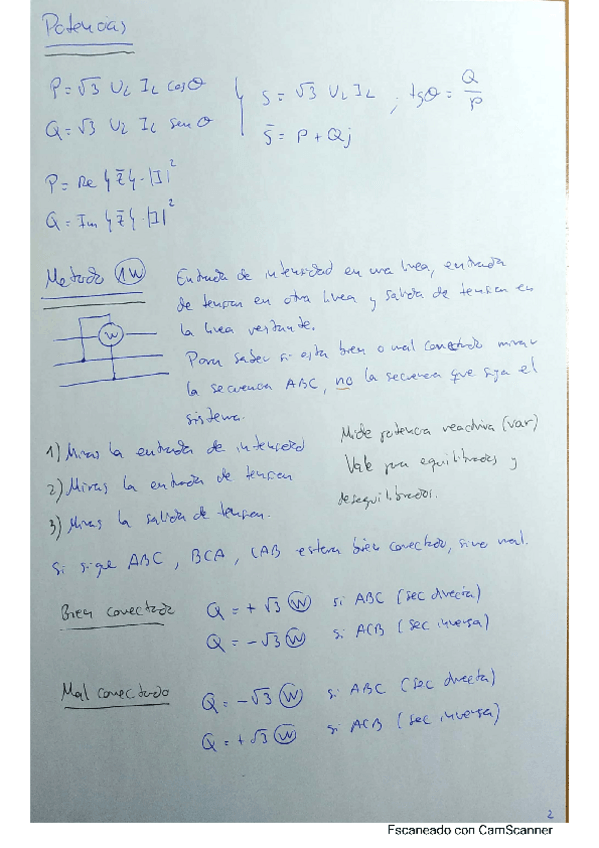 Potencias
P = √3 U_L I_L cos θ
Q = √3 U_L I_L sen θ
S = √3 U_L I_L ; tg θ = Q/P
S̄ = P + Qj
P = Re {Z̄} · |I|²
Q = Im {Z̄} · |I|²
Metodo 1W
Entrada de intensidad en una linea, entrada
de tension en otra linea y salida de tension en
la linea restante.
W
Para saber si esta bien o mal conectado mirar
la secuencia ABC, no la secuencia que siga el
sistema.
1) Miras la entrada de intensidad
2) Miras la entrada de tension
3) Miras la salida de tension.
Mide potencia reactiva (var)
Vale para equilibrados y
desequilibrados.
Si sigue ABC, BCA, CAB estara bien conectado, sino mal.
Bien conectado
Q = + √3 W si ABC (sec directa)
Q = - √3 W si ACB (sec inversa)
Mal conectado
Q = - √3 W si ABC (sec directa)
Q = + √3 W si ACB (sec inversa)
2
Escaneado con CamScanner